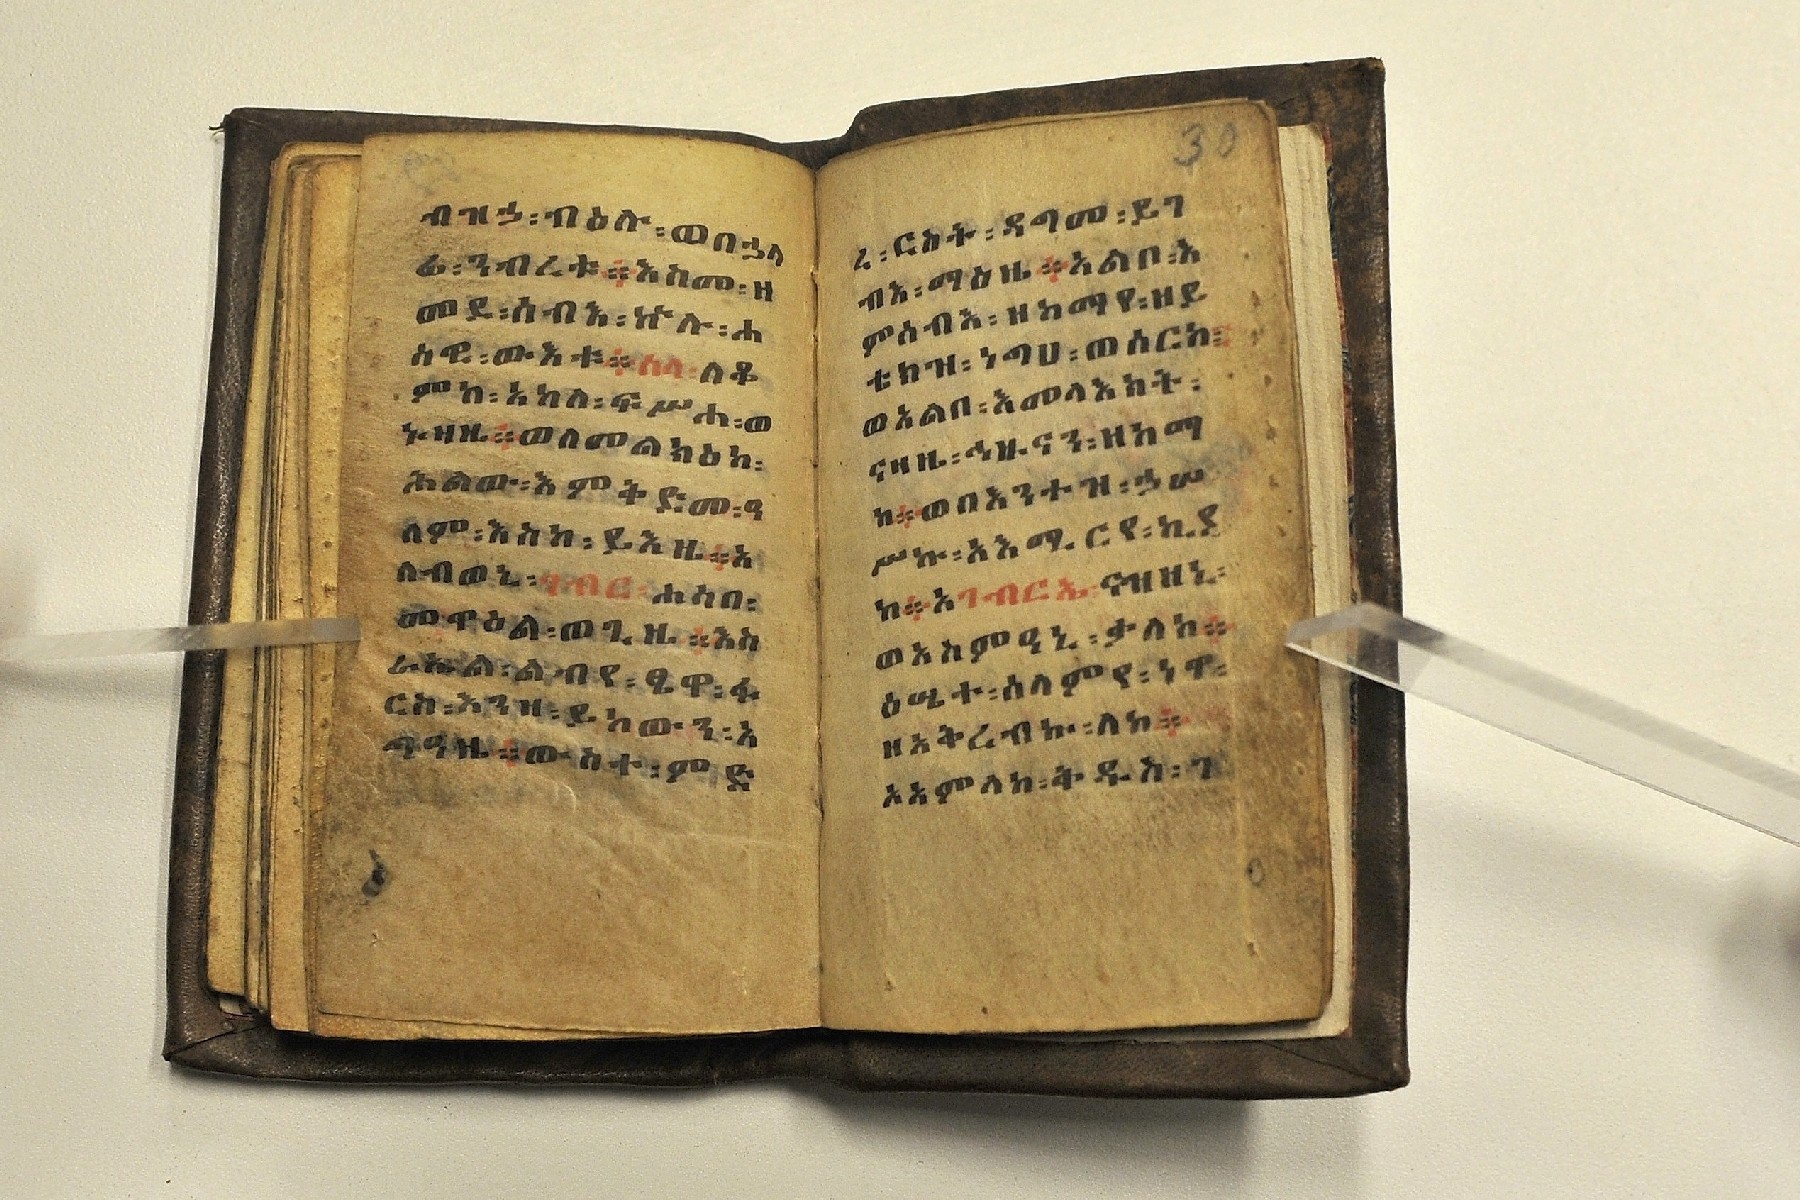 ብዝኃ፡ብዕሉ፡ወበኃላ
ፊ፡ንብረቱ።እስመ፡ዘ
መደ፡ሰብእ፡ኵሉ፡ሐ
ሳዊ፡ውእቱ።ሰላ፡ለቆ
ምከ፡አክለ፡ፍሥሐ፡ወ
ኑዛዜ።ወለመልክዕከ፡
ሕልው፡እምትድመ፡ዓ
ለም፡እስከ፡ይእዜ።አ
ለብወኒ፡ገብር፡ሐሳበ፡
መዋዕል፡ወጊዜ።እስ
ራኤል፡ልብየ፡ፄዋ፡ፋ
ርስ፡እንዘ፡ይከውን፡አ
ማዓዜ።ውስተ፡ምድ
30
ረ፡ርስት፡ዳግመ፡ይገ
ብእ፡ማዕዜ።አልቦ፡እ
ምሰብእ፡ዘከማየ፡ዘይ
ቴክዝ፡ነግሀ፡ወሰርከ።
ወአልቦ፡እመላእክት፡
ናዛዜ፡ኀዙናን፡ዘከማ
ከ።ወበእንተዝ፡ኃሠ
ሥኩ፡አእሚርየ፡ኪያ
ከ።አገብርኤ፡ናዝዘኒ፡
ወአስምዓኒ፡ቃለከ።
ዕሤተ፡ሰላምየ፡ነዋ፡
ዘአቅረብኩ፡ለከ።
ኦአምላከ፡ቅዱስ፡ገ